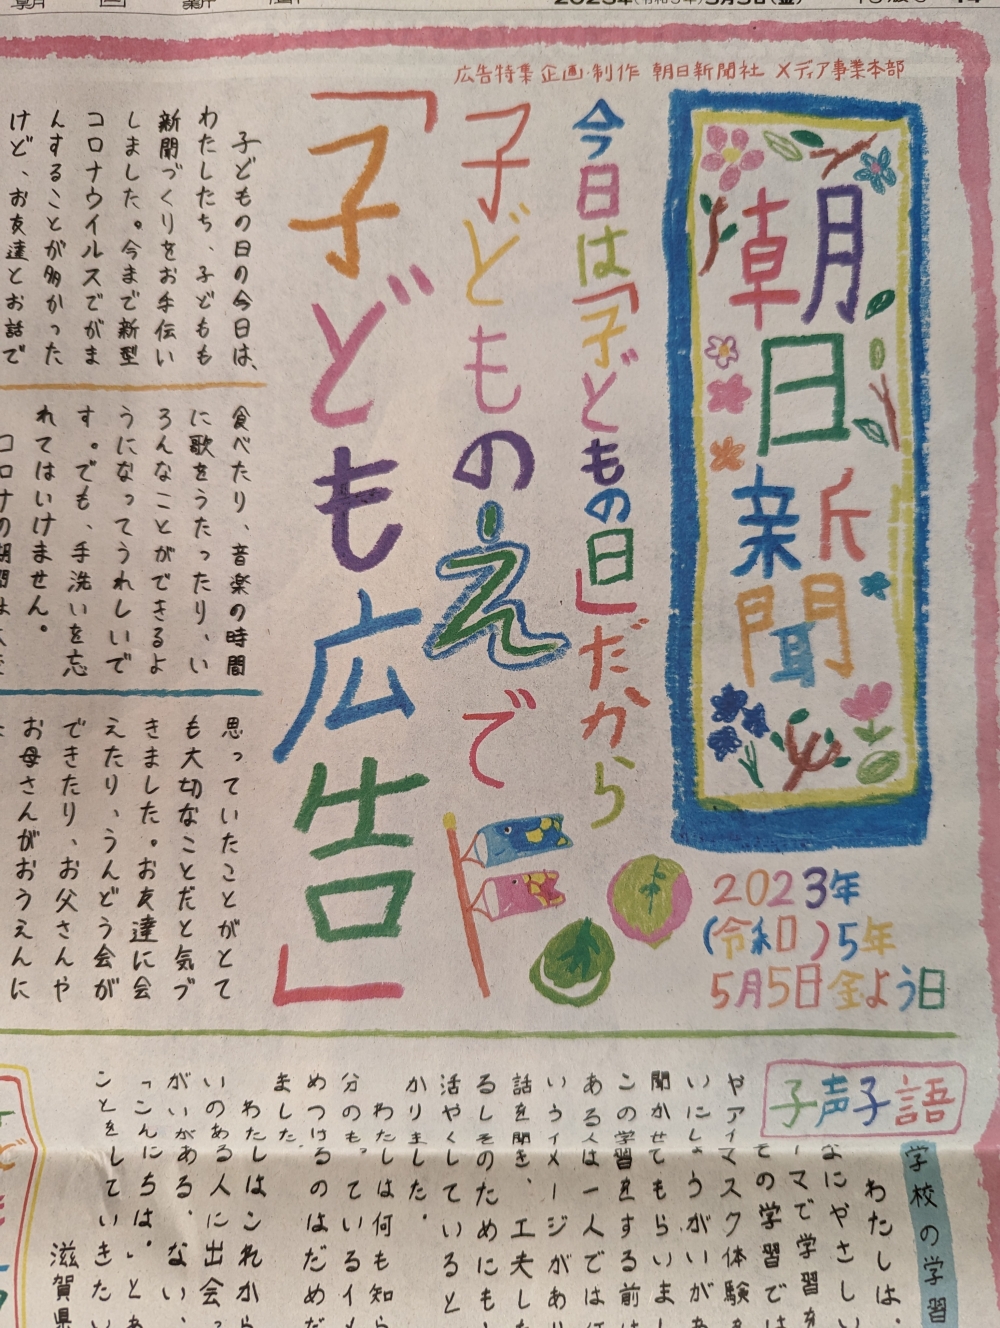 2023年(令和5年)5月5日(金)
広告特集 企画・制作 朝日新聞社 メディア事業本部
朝日新聞
2023年
(令和)5年
5月5日金よう日
今日は「子どもの日」だから
子どものえで
「子ども広告」
子どもの日の今日は、
わたしたち、子どもも
新聞づくりをお手伝い
しました。今まで新型
コロナウイルスでがま
んすることが多かった
けど、お友達とお話で
食べたり、音楽の時間
に歌をうたったり、い
ろんなことができるよ
うになってうれしいで
す。でも、手洗いを忘
れてはいけません。
思っていたことがとて
も大切なことだと気づ
きました。お友達に会
えたり、うんどう会が
できたり、お父さんや
お母さんがおうえんに
子声子語
学校の学習
わたしは、
なにやさしい
マで学習を
その学習では
やアイマスク体験を
いにしょうがいがあ
聞かせてもらいまし
この学習をする前は
ある人は一人では何
いうイメージがあり
話を聞き、工夫した
るしそのためにも、
活やくしていると
かりました。
わたしは何も知ら
分のもっているイメ
めつけるのはだめだ
ました
わたしはこれから
いのある人に出会っ
がいがある、ない、
「こんにちは。」とあ
ことをしていきたい
滋賀県